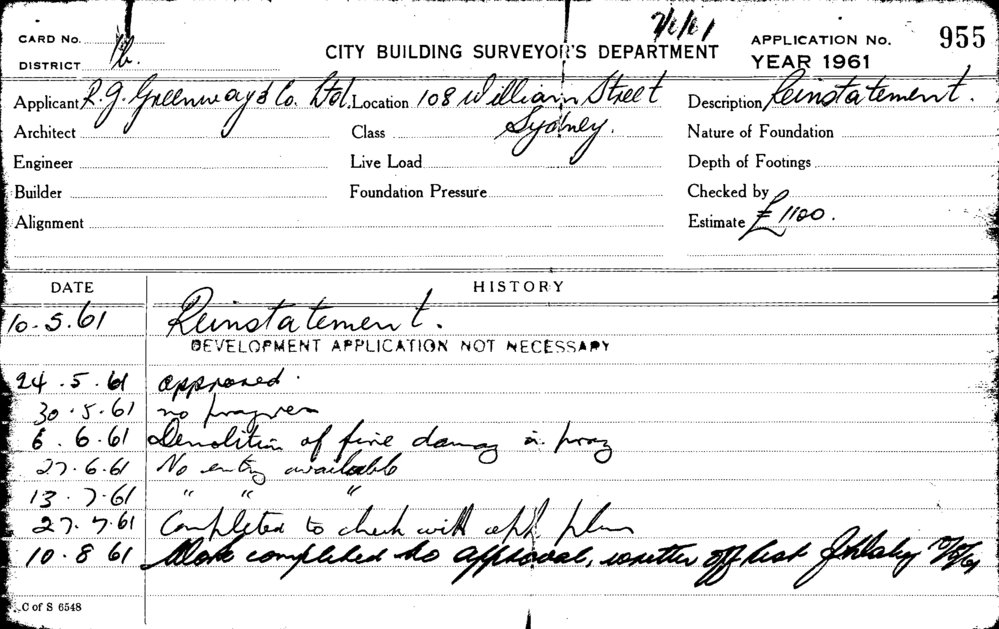 CARD No.
DISTRICT
CITY BUILDING SURVEYOR'S DEPARTMENT
APPLICATION No. 955
YEAR 1961
Applicant R. G. Greenway & Co. Ltd. Location 108 William Street Description Reinstatement.
Architect Class Sydney. Nature of Foundation
Engineer Live Load Depth of Footings
Builder Foundation Pressure Checked by
Alignment Estimate £1100.
DATE HISTORY
10.5.61 Reinstatement.
DEVELOPMENT APPLICATION NOT NECESSARY
24.5.61 approved.
30.5.61 no progress
6.6.61 Demolition of fire damag in prog
27.6.61 No entry available
13.7.61 " " "
27.7.61 Completed to check with app plan
10.8.61 Work completed to approval, written off list
C of S 6548